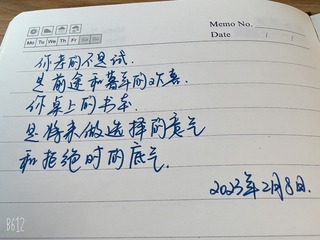 Memo No.
Mo Tu We Th Fr Sa Su
Date / /
你考的不是试.
是前途和暮年的欢喜.
你桌上的书本.
是将来做选择的意气
和拒绝时的底气.
2023年2月8日.
B612